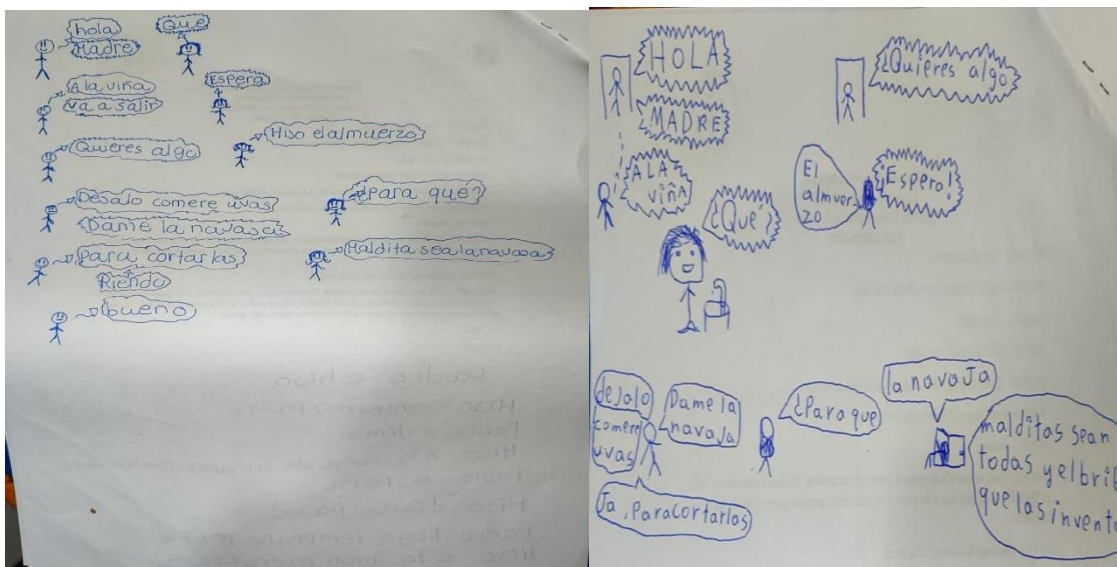 hola
Madre
Que
A la viña
va a salir
Espera
Quieres algo
Hijo el almuerzo
Dejalo comere uvas
Dame la navasa
¿para que?
para cortarlas
Maldita sea la navasa
Riendo
bueno
Padre e hijo
HOLA
MADRE
¿Quieres algo
A LA
viñA
¿Qué?
El
almuer
zo
¡Espero!
deJalo
comere
uvas
Dame la
navaJa
Ja, Para cortarlas
¿Para que
la navaJa
malditas sean
todas y el brib
que las invent